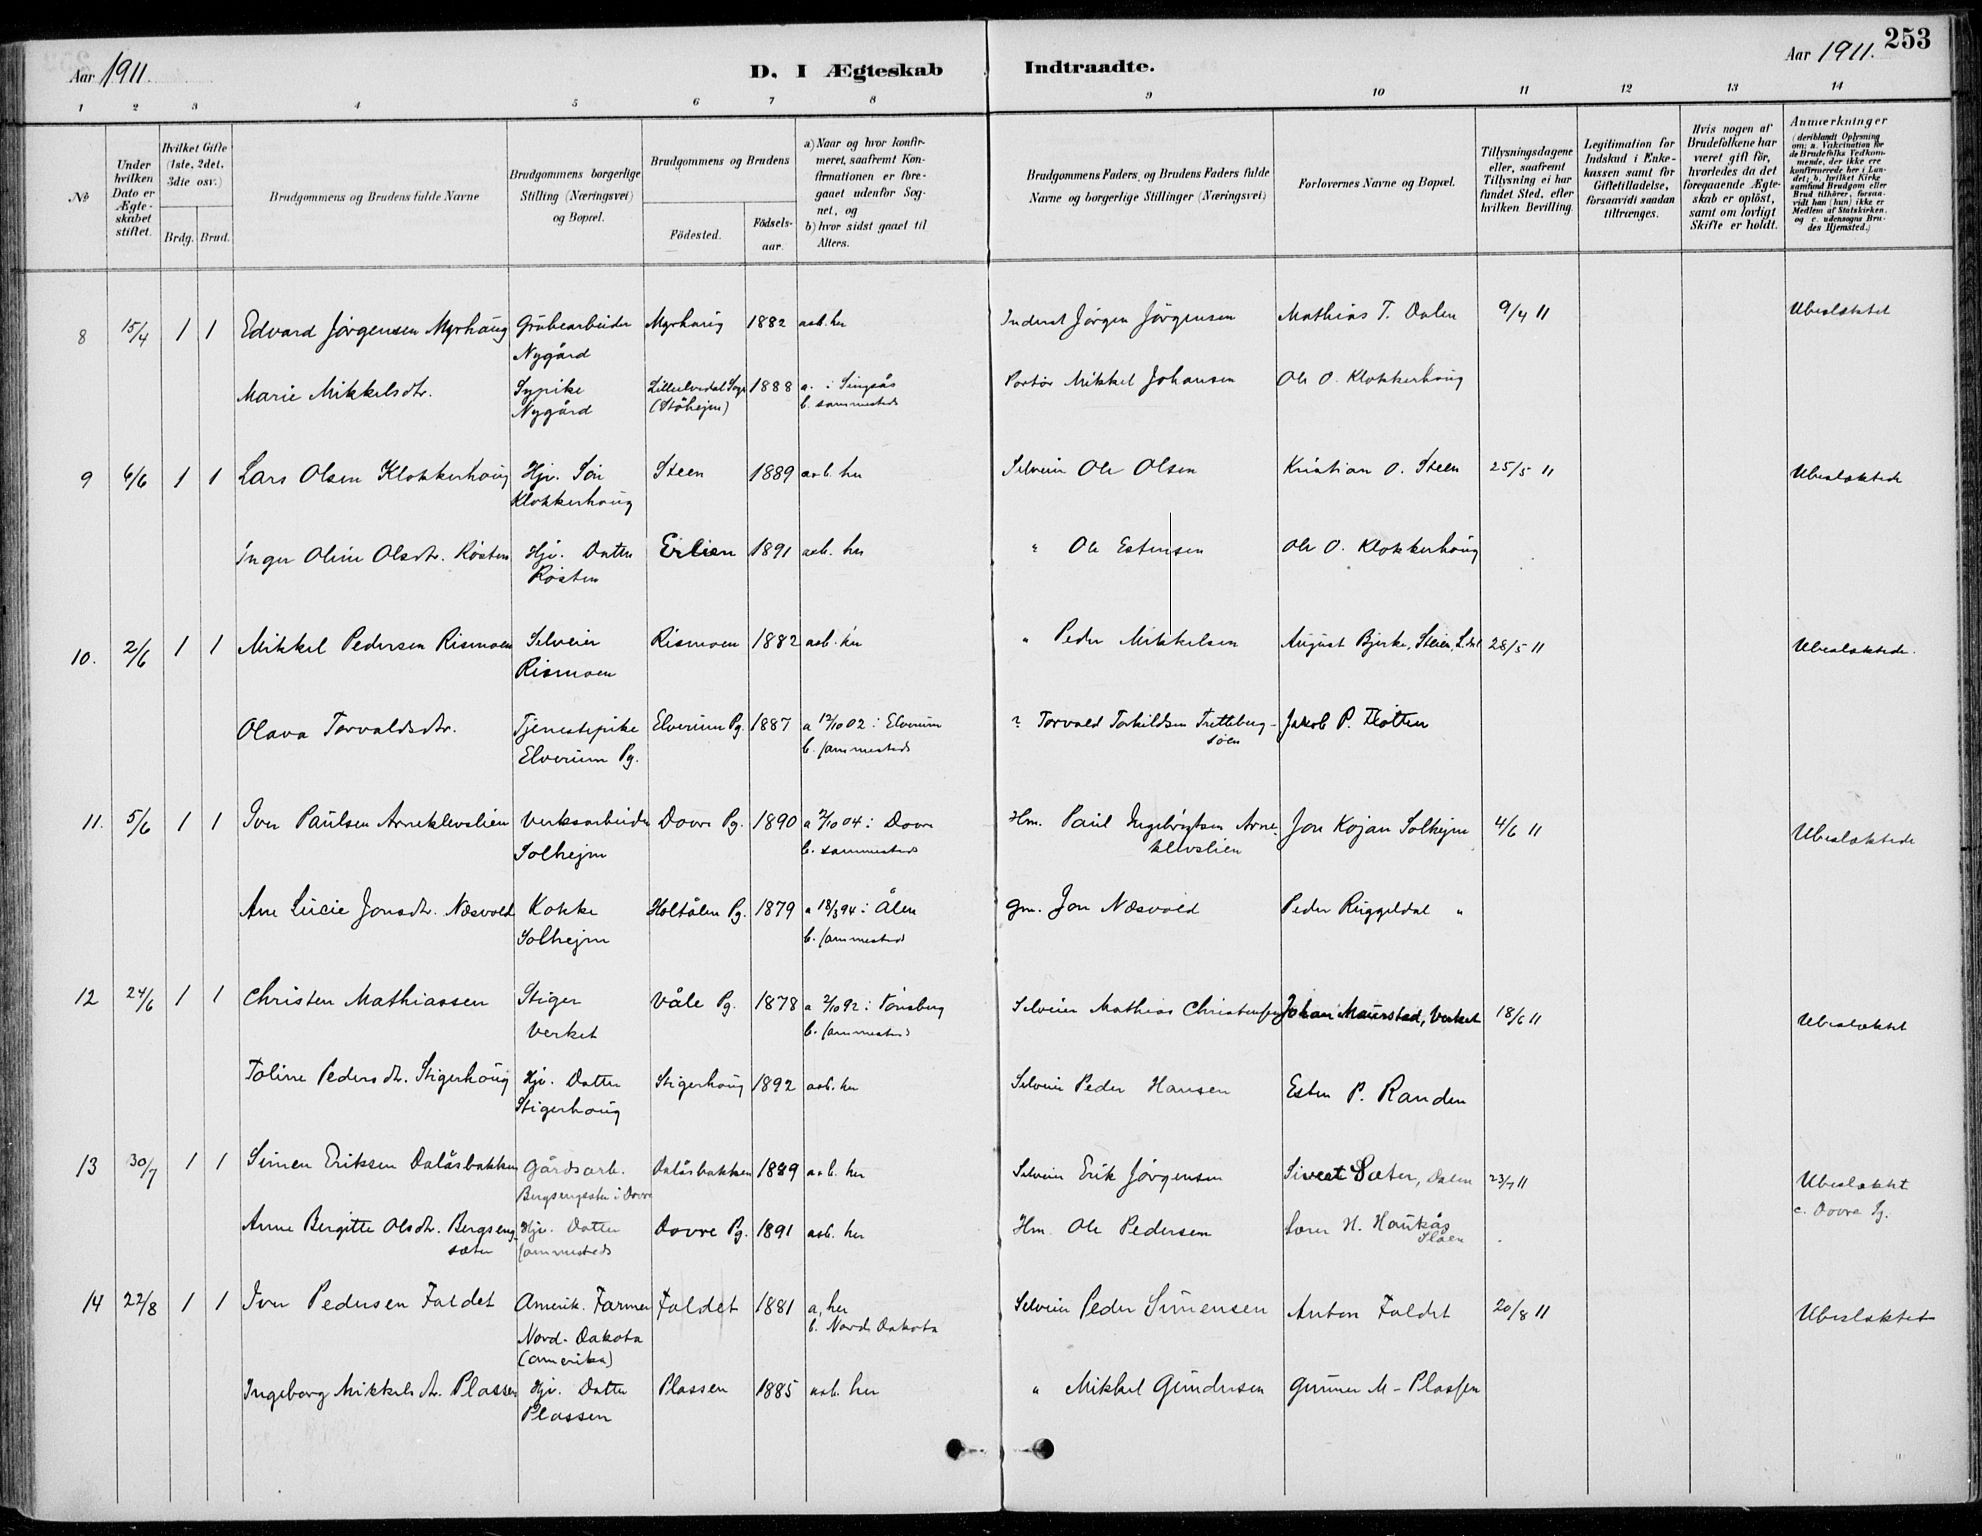 Aar 1911.
D. I Ægteskab
Indtraadte.
Aar 1911.
253
1 2 3 4 5 6 7 8 9 10 11 12 13 14
No
Under hvilken Dato er Ægteskabet stiftet.
Hvilket Gifte (1ste, 2det, 3die osv.)
Brdg. Brud.
Brudgommens og Brudens fulde Navne
Brudgommens borgerlige Stilling (Næringsvei) og Bopæl.
Brudgommens og Brudens
Födested.
Födsels-aar.
a) Naar og hvor konfirmeret, saafremt Konfirmationen er foregaaet udenfor Sognet, og
b) hvor sidst gaaet til Alters.
Brudgommens Faders og Brudens Faders fulde Navne og borgerlige Stillinger (Næringsvei)
Forlovernes Navne og Bopæl.
Tillysningsdagene eller, saafremt Tillysning ei har fundet Sted, efter hvilken Bevilling.
Legitimation for Indskud i Enkekassen samt for Giftetilladelse, forsaavidt saadan tiltrænges.
Hvis nogen af Brudefolkene har været gift för, hvorledes da det foregaaende Ægteskab er oplöst, samt om lovligt Skifte er holdt.
Anmærkninger (deriblandt Oplysning om: a. Vakcination for de Brudefolks Vedkommende, der ikke ere konfirmerede her i Landet; b. hvilket Kirkesamfund Brudgom eller Brud tilhörer, forsaavidt han (hun) ikke er Medlem af Statskirken, og c. udensogns Brudes Hjemsted.)
8 15/4 1 1 Edvard Jörgensen Myrhaug Grubearbeider Nygård Myrhaug 1882 aab. her Inderst Jörgen Jörgensen Mathias T. Dalen 9/4 11 Ubeslektet
Marie Mikkelsdtr. Sypike Nygård Lilleelvedal Sogn (Ståhejm) 1888 a. i Singsås b. sammesteds Portör Mikkel Johansen Ole O. Klokkerhaug
9 6/6 1 1 Lars Olsen Klokkerhaug Hjv. Sön Klokkerhaug Steen 1889 aab. her Selveier Ole Olsen Kristian O. Steen 25/5 11 Ubeslektede
Inger Oline Olsdtr. Røsten Hjv. Datter Røsten Eilien 1891 aab. her " Ole Estensen Ole O. Klokkerhaug
10. 2/6 1 1 Mikkel Pedersen Rismoen Selveier Rismoen Rismoen 1882 aab. her " Peder Mikkelsen August Bjerke, Steien, L.dal 28/5 11 Ubeslektede.
Olava Torvaldsdtr. Tjenestepike Elverum Pg. Elverum Pg. 1887 a 12/10 02 i Elverum b. sammesteds ? Torvald Torkildsen Trettebergsöen Jakob P. Flötten
11. 5/6 1 1 Iver Paulsen Arneklevslien Verksarbeider Solhejm Dovre Pg. 1890 a 2/10 04 i Dovre b. sammesteds Hm. Paul Ingebrigtsen Arneklevslien Jon Kojan Solhejm 4/6 11 Ubeslektede
Ane Lucie Jonsdtr. Næsvold Kokke Solhejm Holtålen Pg. 1879 a 18/3 94 i Ålen b. sammesteds Gm. Jon Næsvold Peder Ruggeldal "
12 24/6 1 1 Christen Mathiassen Stiger Verket Våle Pg. 1878 a 2/10 92 i Tönsberg b. sammesteds Selveier Mathias Christensen Johan Maurstad, Verket 18/6 11 Ubeslektet
Toline Pedersdtr. Stigerhaug Hjv. Datter Stigerhaug Stigerhaug 1892 aab. her Selveier Peder Hansen Esten P. Randen
13 30/7 1 1 Simen Eriksen Dalåsbakken Gårdsarb. Bergsengsæter i Dovre Dalåsbakken 1889 aab. her Selveier Erik Jörgensen Siveet Sæter, Dalen 23/7 11 Ubeslektet c. Dovre Pg.
Anne Bergitte Olsdtr. Bergsengsæter Hjv. Datter sammesteds Dovre Pg. 1891 aab. her Hm. Ole Pedersen Lærer H. Haukås Slåen
14 22/8 1 1 Iver Pedersen Faldet Amerik. Farmer Nord-Dakota (Amerika) Faldet 1881 a, her b. Nord Dakota Selveier Peder Simensen Anton Faldet 20/8 11 Ubeslektet
Ingeborg Mikkelsdtr. Plassen Hjv. Datter Plassen Plassen 1885 aab. her " Mikkel Gundersen Gunner M. Plassen